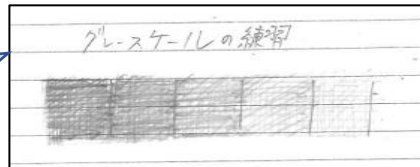 グレースケールの練習